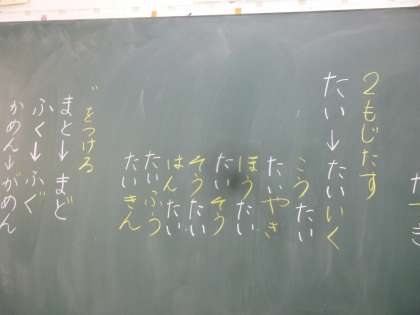 2もじたす
たい↓たいいく
こうたい
たいやき
ほうたい
たいそう
そうたい
はんたい
たいふう
たいきん
゛をつけろ
まと↓まど
ふく↓ふぐ
かめん↓がめん